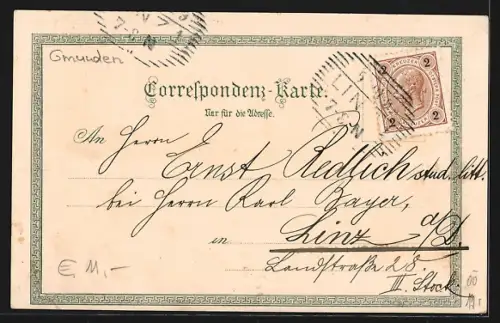 Gmunden
Correspondenz-Karte.
Nur für die Adresse.
2 2
2 2
LINZ
7-8 N
An Herrn
Ernst Redlich stud. litt.
bei Herrn Karl Bayer,
in Linz a/D.
Landstraße 28
III. Stock.
€ 11,-